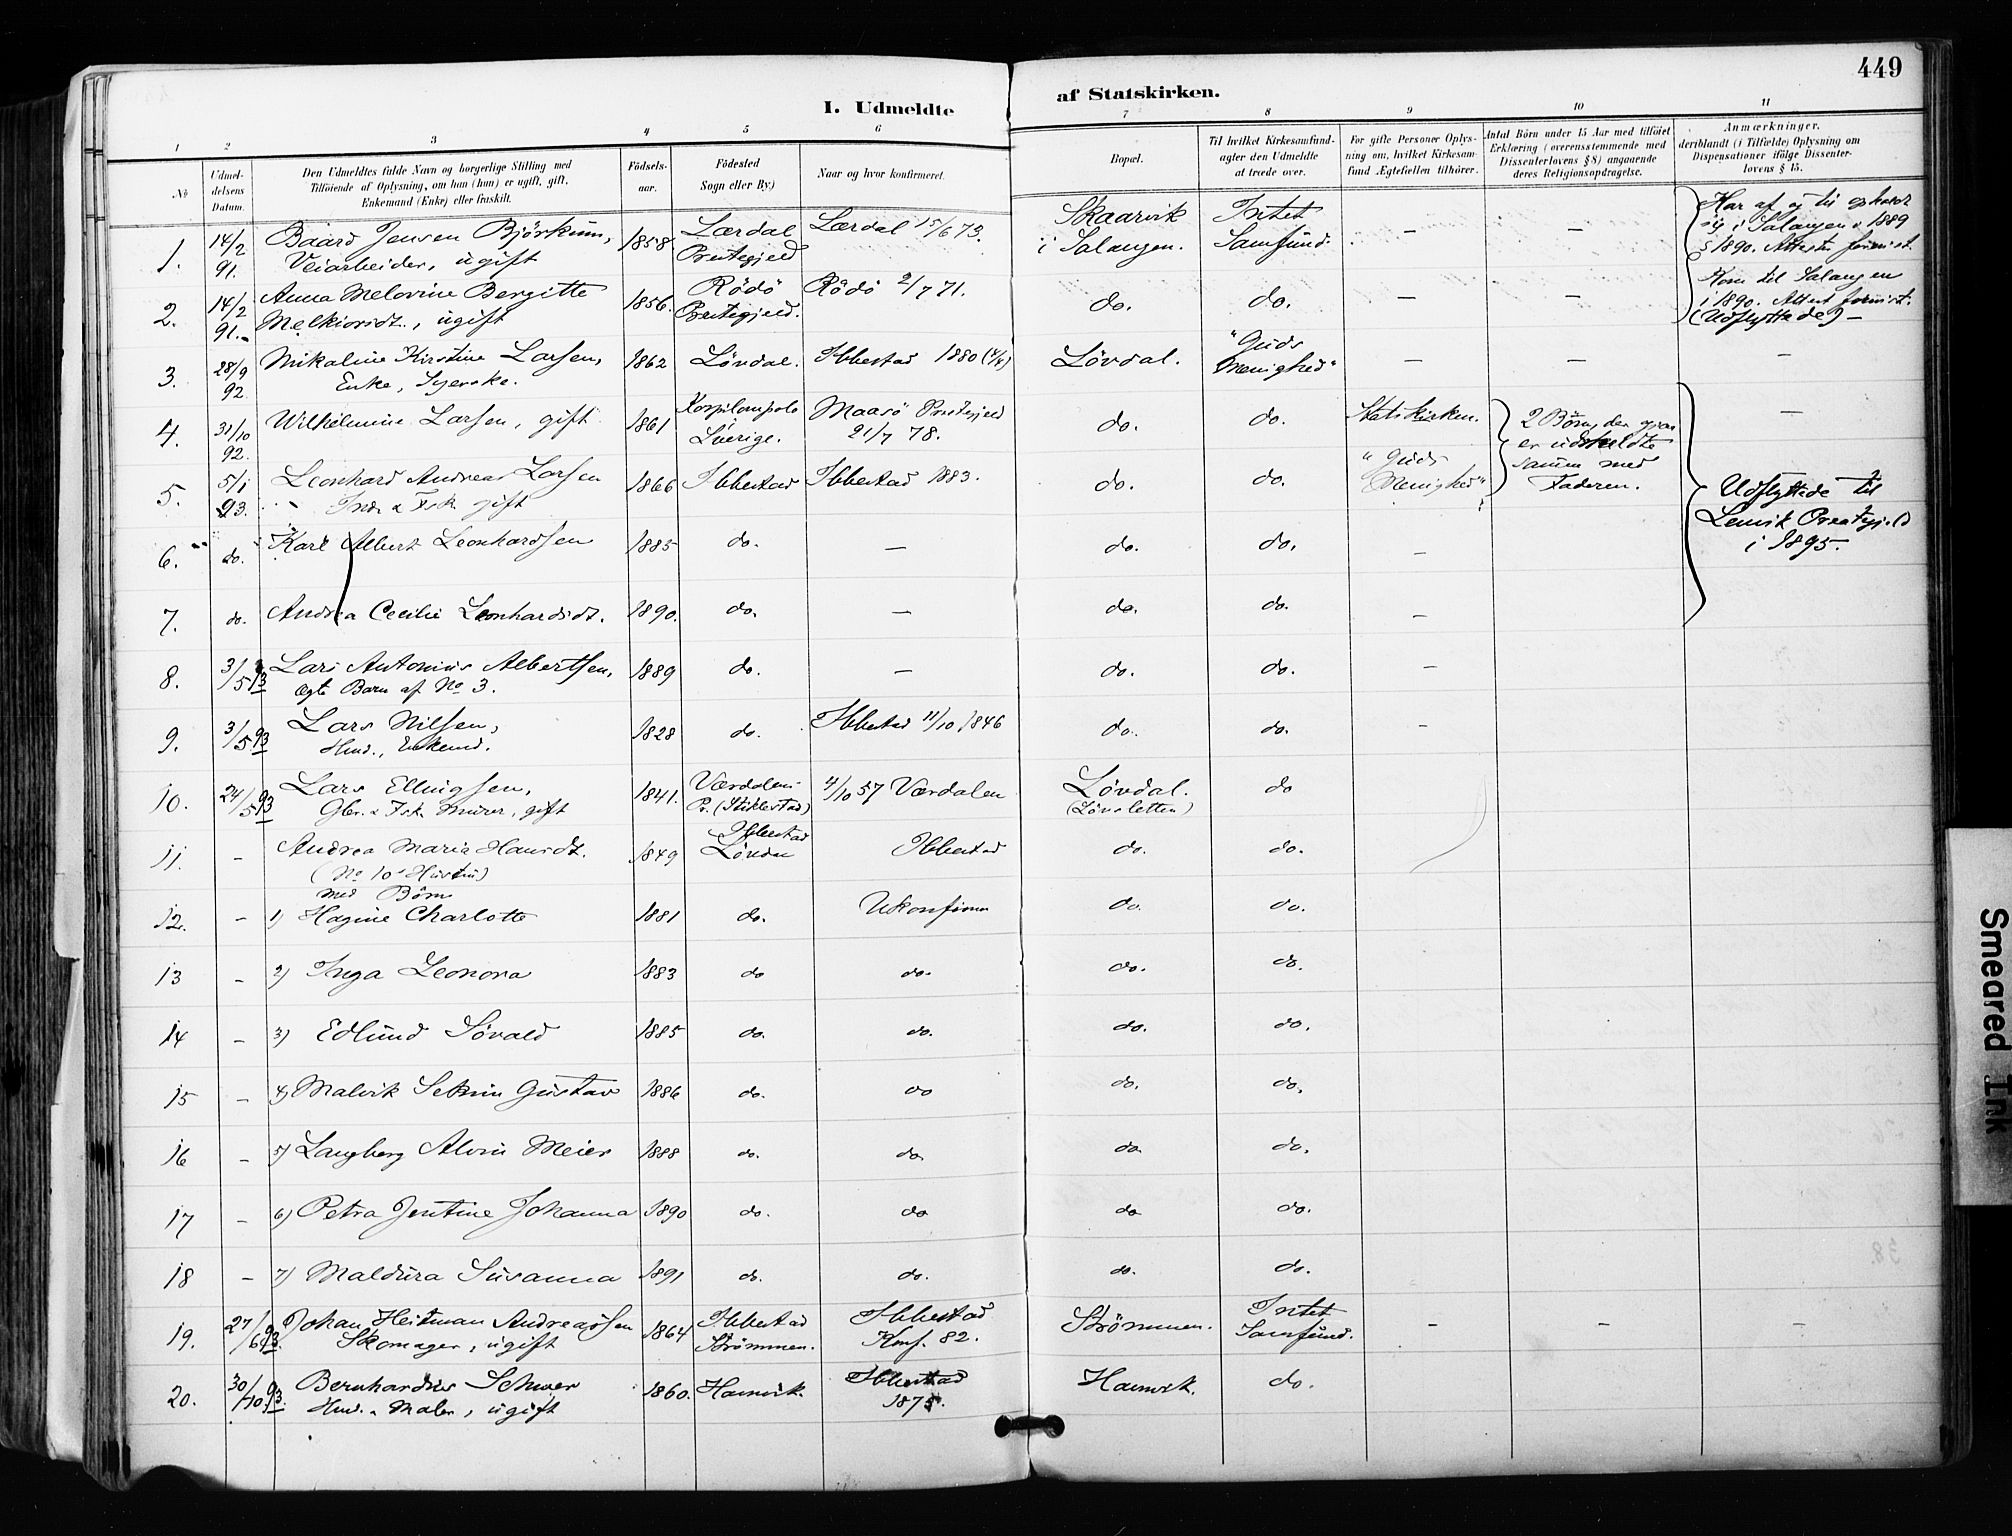 449
I. Udmeldte af Statskirken.
1 2 3 4 5 6 7 8 9 10 11
№
Udmel-
delsens
Datum.
Den Udmeldtes fulde Navn og borgerlige Stilling med
Tilføiende af Oplysning, om han (hun) er ugift, gift,
Enkemand (Enke) eller fraskilt.
Födsels-
aar.
Födested
Sogn eller By.)
Naar og hvor konfirmeret.
Bopæl.
Til hvilket Kirkesamfund-
agter den Udmeldte
at træde over.
For gifte Personer Oplys-
ning om, hvilket Kirkesam-
fund Ægtefællen tilhörer.
Antal Börn under 15 Aar med tilföiet
Erklæring (overensstemmende med
Dissenterlovens § 8) angaaende
deres Religionsopdragelse.
Anmærkninger,
deriblandt (i Tilfælde) Oplysning om
Dispensationer ifölge Dissenter-
lovens § 15.
1. 14/2 91. Baard Jensen Bjørkum, 1858. Lærdal Lærdal 15/6 73. Skaarvik Intet – –
Veiarbeider, ugift Prestegjeld i Salangen. Samfund.
Har af og til opholdt
sig i Salangen 1889
1890. Attest formist.
2. 14/2 91. Anna Melovine Bergitte 1856. Rödö Rödö 2/7 71. do. do. – –
Melkiorsdt., ugift Prestegjeld.
Kom til Salangen
i 1890. Attest formist.
(Udflyttede) –
3. 28/9 92. Mikaline Kirstine Larsen, 1862 Lövdal. Ibbestad 1880 Lövdal. "Guds – – –
Enke, Syerske. Menighed"
4. 31/10 92. Wilhelmine Larsen, gift 1861 Maasö Prestegjeld do. do. Statskirken. –
Sverige. 21/7 78.
2 Børn, der
er udmeldte
sammen med
Faderen.
5. 5/1 93. Leonhard Andreas Larsen 1866 Ibbestad Ibbestad 1883. do. do. "Guds
Indr. & Fsk. gift Menighed"
Udflyttede til
Lenvik Prestegjeld
i 1895.
6. do. Karl Albert Leonhardsen 1885 do. – do. do. –
7. do. Andrea Cecilie Leonhardsdt. 1890. do. – do. do. –
8. 3/5 93 Lars Antonius Albertsen, 1889 do. – do. do. –
ægte Barn af No 3.
9. 3/5 93 Lars Nilsen, 1828 do. Ibbestad 11/10 1846 do. do. –
Hmd., Enkemd.
10. 24/5 93 Lars Ellingsen, 1841. Værdalens 4/10 57 Værdalen Lövdal. do
Gbr. & Fsk. Murer, gift Pr. (Stiklestad) (Lövsletten)
11. – Andrea Maria Hansdt. 1849 Ibbestad Ibbestad do. do.
(No 10's Hustru) Lövdal
med Börn
12. – 1) Hagine Charlotte 1881 do. Ukonfirm do. do.
13 – 2) Inga Leonora 1883 do do. do. do.
14 – 3) Edlund Sövald 1885 do. do. do. do.
15 – 4) Malvik Gustav 1886 do. do do. do.
16 – 5) Langberg Alvin Meier 1888 do. do. do do.
17 – 6) Petra Jentine Johanna 1890 do. do do do.
18 – 7) Maldura Susanna 1891 do. do. do. do.
19. 27/6 93. Johan Heitman Andreassen 1864 Ibbestad Ibbestad Strömmen. Intet – – –
Skomager, ugift Strömmen. Konf. 82. Samfund.
20. 30/10 93. Bernhardus 1860. Hamvik. Ibbestad Hamvik. do.
Hmd. & Maler, ugift 1875.
Smeared Ink